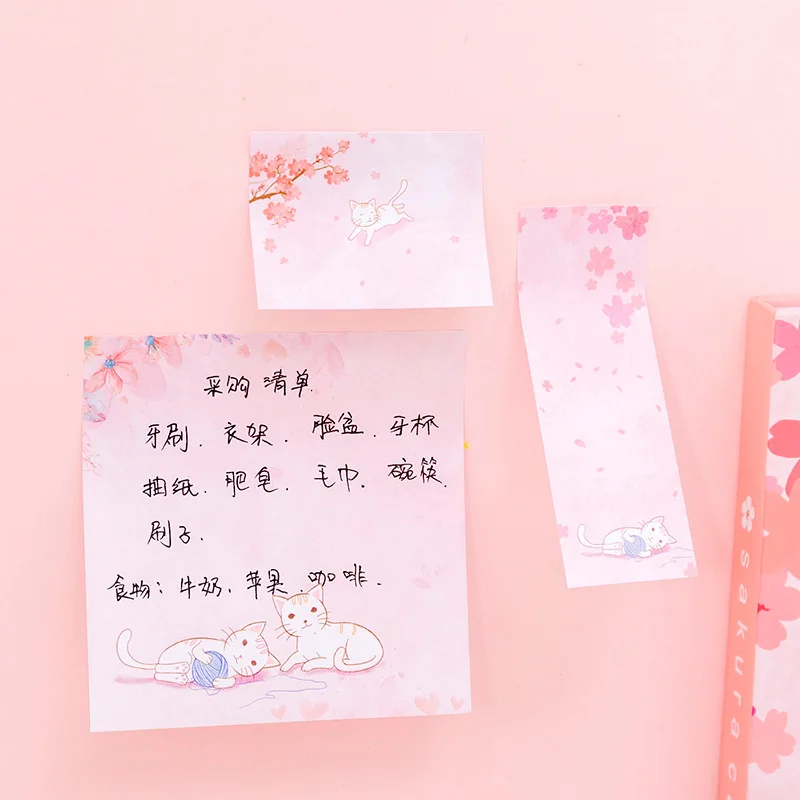 采购清单.
牙刷. 衣架. 脸盆. 牙杯
抽纸. 肥皂. 毛巾. 碗筷.
刷子.
食物: 牛奶. 苹果. 咖啡.
sakura c